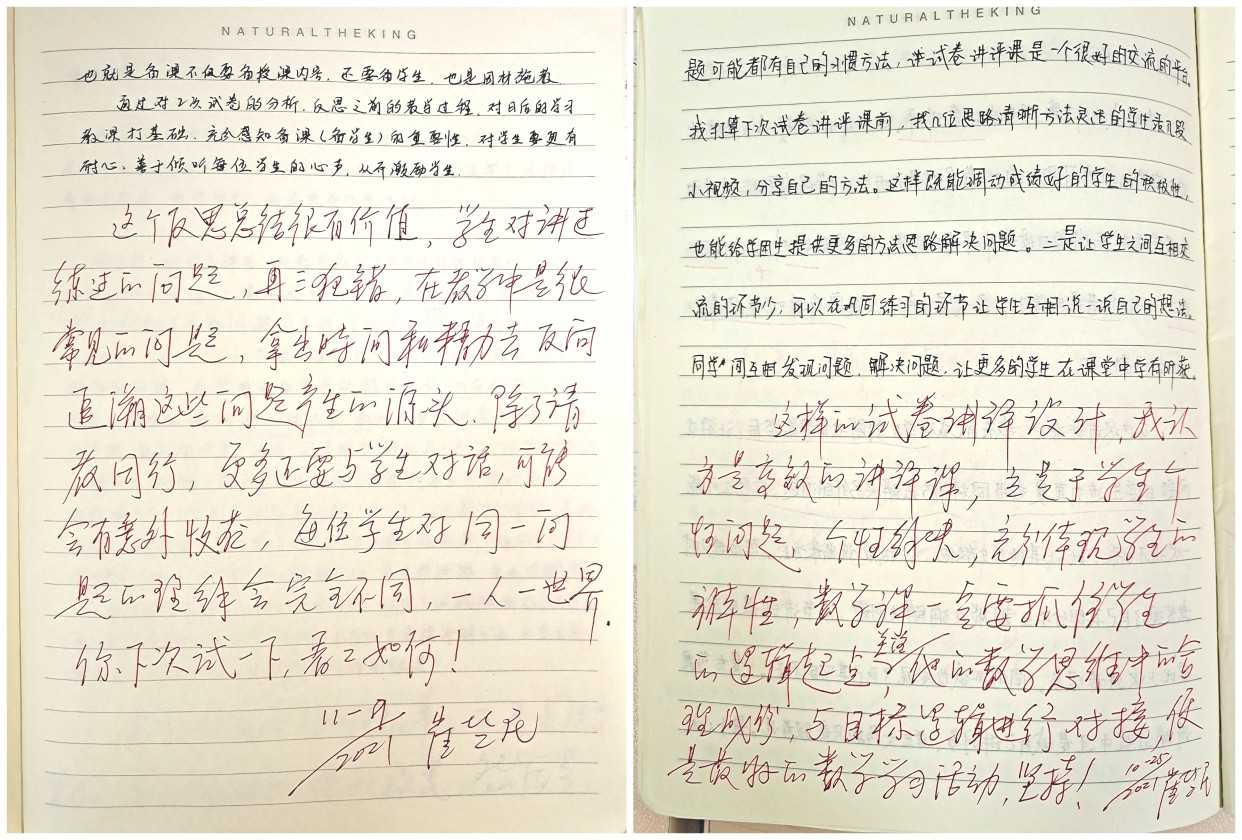 NATURALTHEKING
也就是备课不仅要备授课内容，还要备学生，也是因材施教
通过对2次试卷的分析，反思之前的教学过程，对日后的学习
教课打基础。充分感知备课（备学生）的重要性，对学生要更有
耐心、善于倾听每位学生的心声，从而激励学生.
这个反思总结很有价值，学生对讲过
练过的问题，再三犯错，在教学中是很
常见的问题，拿出时间和精力去反向
追溯这些问题产生的源头，除了请
教同行，更多还要与学生对话，可能
会有意外收获，每位学生对同一问
题的理解会完全不同，一人一世界.
你下次试一下，看看如何！
11-9
2021
NATURALTHEKING
题可能都有自己的习惯方法，讲试卷讲评课是一个很好的交流的平台。
我打算下次试卷讲评课前，找几位思路清晰方法灵活的学生录几段
小视频，分享自己的方法。这样既能调动成绩好的学生的积极性，
也能给学困生提供更多的方法思路解决问题。二是让学生之间互相交
流的环节少，可以在巩固练习的环节让学生互相说一说自己的想法。
同学间互相发现问题，解决问题，让更多的学生在课堂中学有所获。
这样的试卷讲评设计，我认
为是高效的讲评课，立足于学生个
性问题，个性解决，充分体现学生的
主体性，数学课一定要抓住学生
的逻辑起点，关注他的数学思维中的合
理成份，与目标逻辑进行对接，便
是最好的数学学习活动，坚持！
10-25
2021